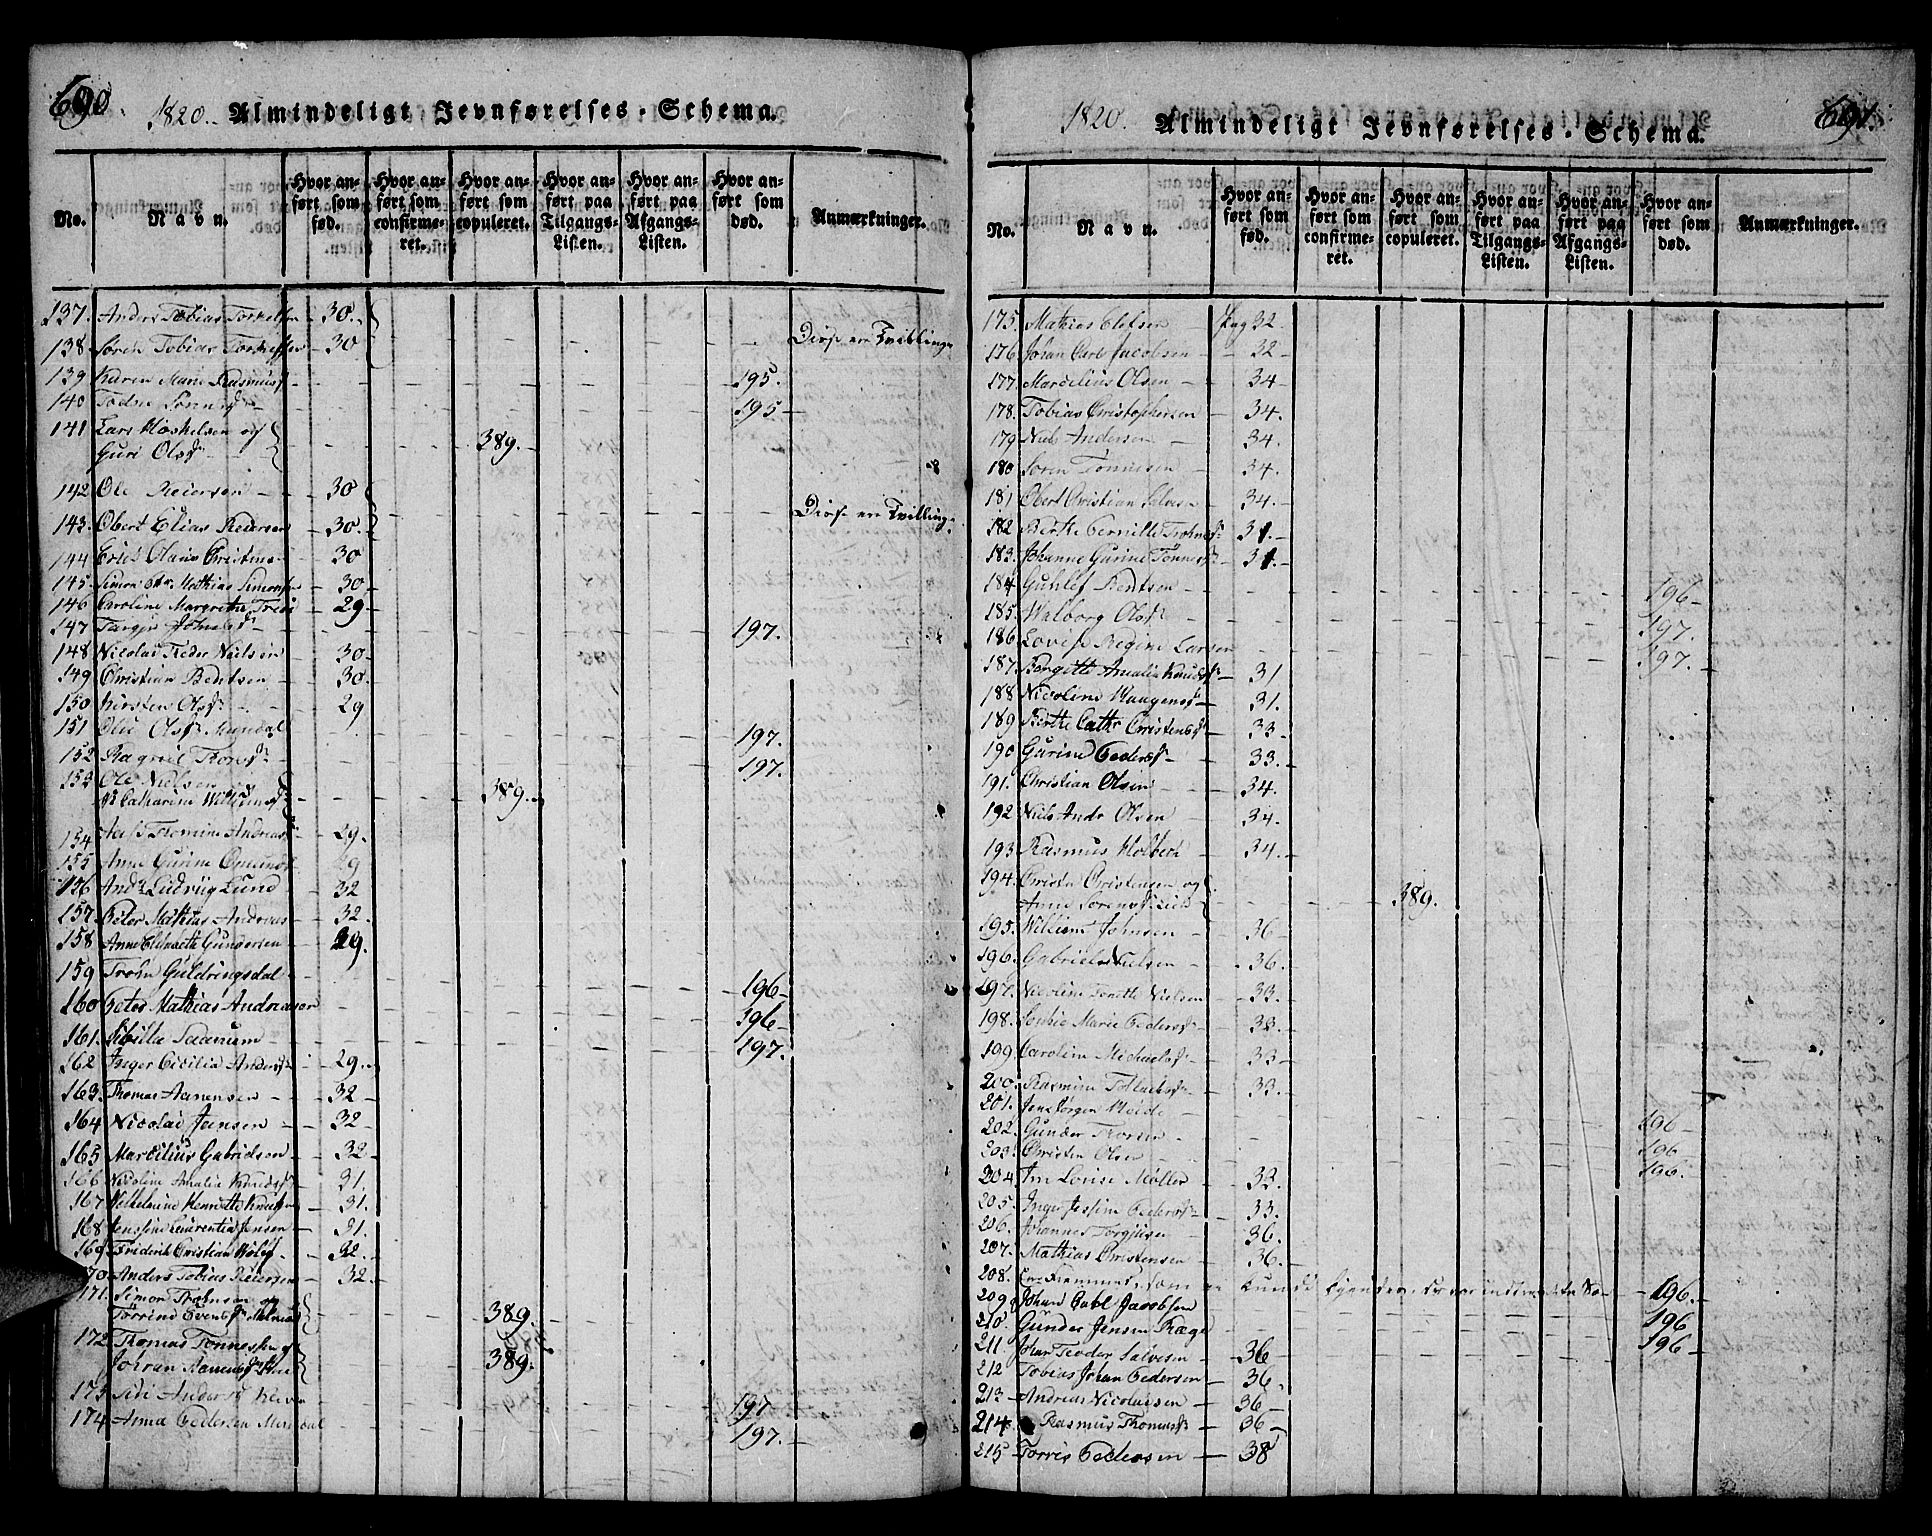 690.
1820. Almindeligt Jevnførelses-Schema.
No. Navn. Hvor anført som fød. Hvor anført som confirmeret. Hvor anført som copuleret. Hvor anført paa Tilgangs-Listen. Hvor anført paa Afgangs-Listen. Hvor anført som død. Anmærkninger.
137. Anders Tobias Torkelsen - 30.
138 Søren Tobias Torkelsen - 30 Disse ere Tvillinge
139 Karen Marie Rasmusd 195.
140 Todne Sørensd 195
141 Lars Hoskelsen og
Guri Olsd 389.
142 Ole Reiersen - 30
143. Obert Elias Reiersen - 30. Disse ere Tvilling.
144 Eric Olaus Christens - 30
145. Simon Mathias Simons - 30
146 Caroline Margrethe - 29
147 Targjer 197.
148 Nicolai Peder Nielsen 30
149 Christian Bentsen - 30.
150 Kirsten Olsd - 29
151 Olie Olsd Mandal 197.
152 Ragnild Thorsd 197.
153 Ole Nielsen
Catharine Willumsd 389.
154 Aase Thomine Andreasd - 29.
155 Anne Gurine 29
156 And Ludvig Lund 32
157. Peter Mathias Andreas - 32.
158 Anne Elisabeth Gundersen - 29.
159 Trohn Guldringsdal 196
160 Peter Mathias Andreasen 396
161. Sibilla Saanum 197.
162 Inger Cicilia Andersd - 29.
163. Thomas Aanensen - 32
164 Nicolai Jansen - 32
165 Marcilius Gabrielsen - 32
166 Nicoline Amalia Knudsd - 31.
167 Wilhelmine Henriette - 31.
168 Jensine Laurentia Jensen - 31.
169 Friderik Christian Holst - 32.
170. Anders Tobias Reiersen - 32.
171. Simon Trohnsen og
Torrine Evensd 389.
172 Thomas Tønnes
Johran 389.
173 Sidi Andersd Kleven 197
174 Anna Pedersen Mandal 197.
691.
1820. Almindeligt Jevnførelses-Schema.
No. Navn. Hvor anført som fød. Hvor anført som confirmeret. Hvor anført som copuleret. Hvor anført paa Tilgangs-Listen. Hvor anført paa Afgangs-Listen. Hvor anført som død. Anmærkninger.
175. Mathias Elefsen - Pag 32.
176. Johan Carl Jacobsen - 32
177. Marcelius Olsen - 34
178. Tobias Christophersen - 34.
179 Niels Andersen - 34.
180 Søren Tønnesen - 34.
181 Obert Christian Salvesen - 34.
182 Berthe Pernille Trohnsd 31.
183. Johanne Gurine Tønnesd 31.
184 Gunlef Bentsen 196
185. Walborg Olsd 197.
186. Lovise Regine Larsen 197.
187. Bergitte Amalia Knudsd - 31
188 Nicoline Maagensd - 31.
189 Berthe Cathr Christensd - 33.
190 Gurine Pedersd - 33.
191. Christian Olsen - 34.
192 Niels Andr Olsen - 34.
193 Rasmus Holbech - 34.
194. Christen Christensen og
Anne Sørensd 389.
195. William Johnsen - 36
196. Gabriel Nielsen - 36.
197. Nicoline Torette Nielsen - 33.
198. Sophie Marie Pedersd - 33.
199 Caroline Michaelsd - 33
200. Rasmine Tollachsd - 33.
201. Jens Jørgen Heide 196
202. Gunder Thorsen 196
203. Christen Olsen 196.
204 Louise Møller - 33.
205. Inger Jesine Pedersd - 33.
206. Johannes Torgjusen 36.
207. Mathias Christensen - 36.
208. En Fremmed som kunde 196.
209. Johan Carl Jacobsen 196
210. Gunder Jensen Træge 196
211 Johan Teodor Salvesen - 36
212 Tobias Johan Pedersen - 36.
213 Andreas Nicolaisen - 36
214 Rasmus Thomas - 36
215 Torris Pedersen - 38